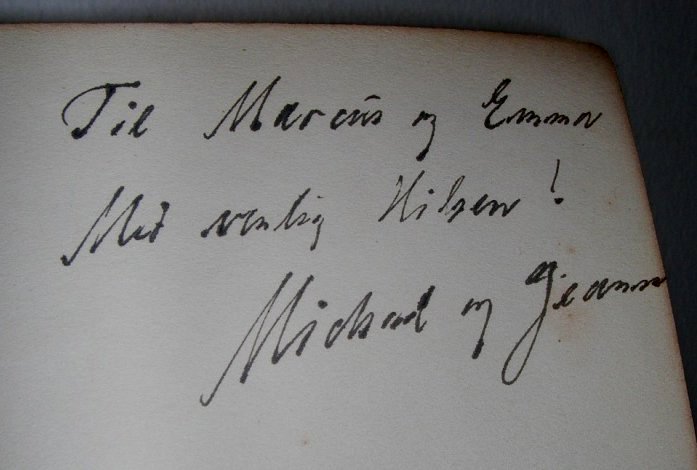 Til Marcus og Emma
Med venlig Hilsen!
Michael og